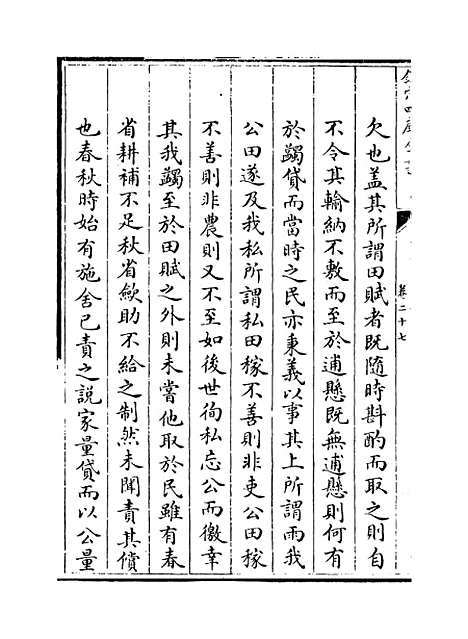 欽定四庫全書
卷二十七
欠也蓋其所謂田賦者既隨時斟酌而取之則自
不令其輸納不敷而至於逋懸既無逋懸則何有
於蠲貸而當時之民亦秉義以事其上所謂雨我
公田遂及我私所謂私田稼不善則非吏公田稼
不善則非農則又不至如後世徇私忘公而徼幸
其我蠲至於田賦之外則未嘗他取於民雖有春
省耕補不足秋省斂助不給之制然未聞責其償
也春秋時始有施舍已責之説家量貸而以公量